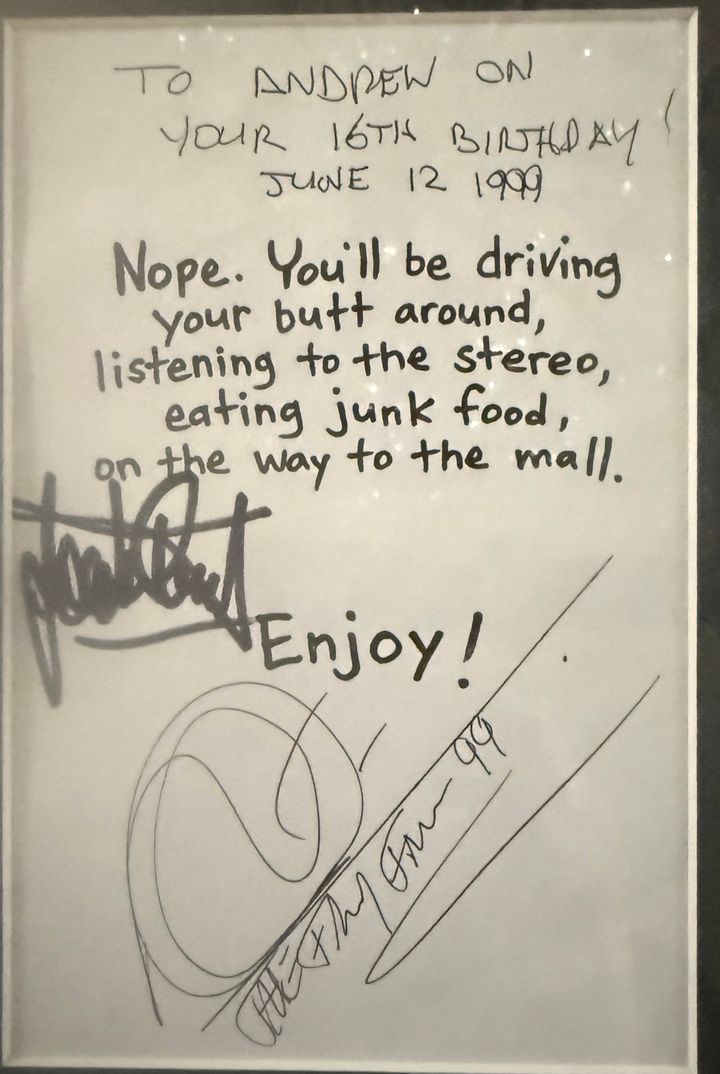 TO ANDREW ON
YOUR 16TH BIRTHDAY!
JUNE 12 1999
Nope. You'll be driving
your butt around,
listening to the stereo,
eating junk food,
on the way to the mall.
Enjoy!
99